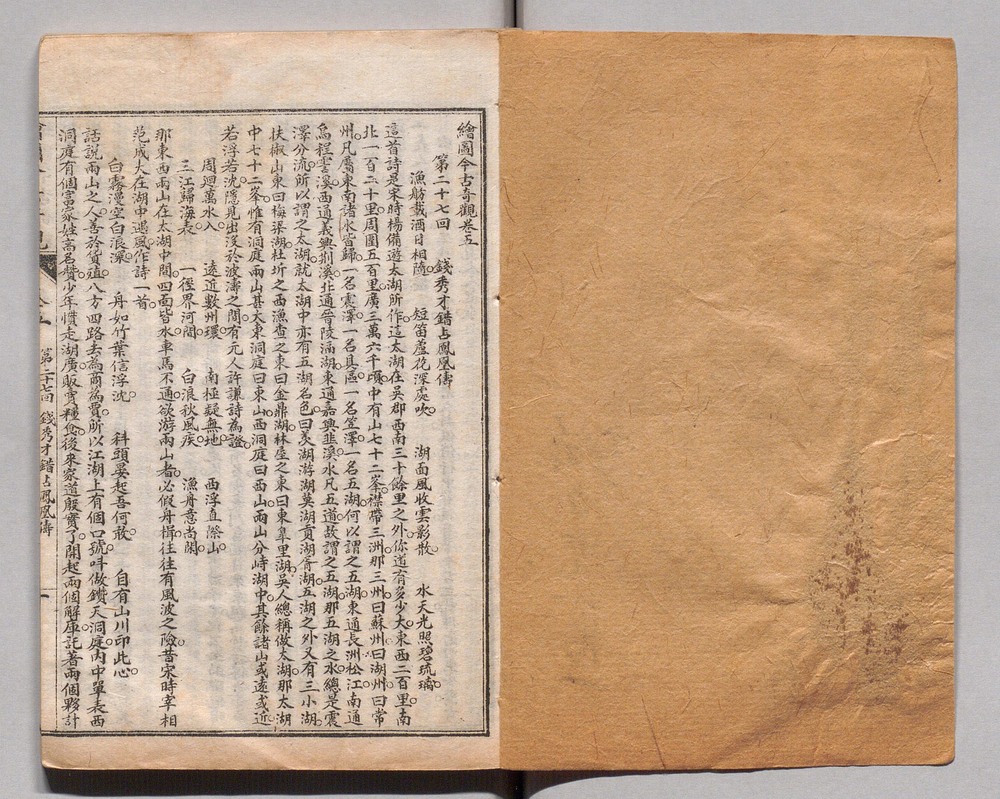 繪圖今古奇觀卷五
第二十七回 錢秀才錯占鳳凰儔
漁舫載酒日相隨 短笛蘆花深處吹 湖面風收雲影散 水天光照碧琉璃
這首詩是宋時楊備遊太湖所作這太湖在吳郡西南三十餘里之外你道有多少大東西二百里南
北一百二十里周圍五百里廣三萬六千頃中有山七十二峯襟帶三洲那三州曰蘇州曰湖州曰常
州凡屬東南諸水皆歸一名震澤一名具區一名笠澤一名五湖何以謂之五湖東通長洲松江南通
烏程霅溪西通義興荆溪北通晉陵滆湖東通嘉興韭溪水凡五道故謂之五湖那五湖之水總是震
澤分流所以謂之太湖就太湖中亦有五湖名色曰菱湖游湖莫湖貢湖胥湖五湖之外又有三小湖
扶椒山東曰梅梁湖杜圻之西漁查之東曰金鼎湖林屋之東曰東臯里湖吳人總稱做太湖那太湖
中七十二峯惟有洞庭兩山甚大東洞庭曰東山西洞庭曰西山兩山分峙湖中其餘諸山或遠或近
若浮若沈隱見出沒於波濤之間有元人許謙詩為證
周迴萬水入 遠近數州環 南極疑無地 西浮直際山
三江歸海表 一徑界河間 白浪秋風疾 漁舟意尚閒
那東西兩山在太湖中間四面皆水車馬不通欲游兩山者必假舟楫往往有風波之險昔宋時宰相
范成大在湖中遇風作詩一首
白霧漫空白浪深 舟如竹葉信浮沈 科頭晏起吾何敢 自有山川印此心
話說兩山之人善於貨殖八方四路去為商為賈所以江湖上有個口號呌做鑽天洞庭內中單表西
洞庭有個富家姓高名贊少年慣走湖廣販賣糧食後來家道殷實了開起兩個解庫託著兩個夥計
第二十七回 錢秀才錯占鳳凰儔 一